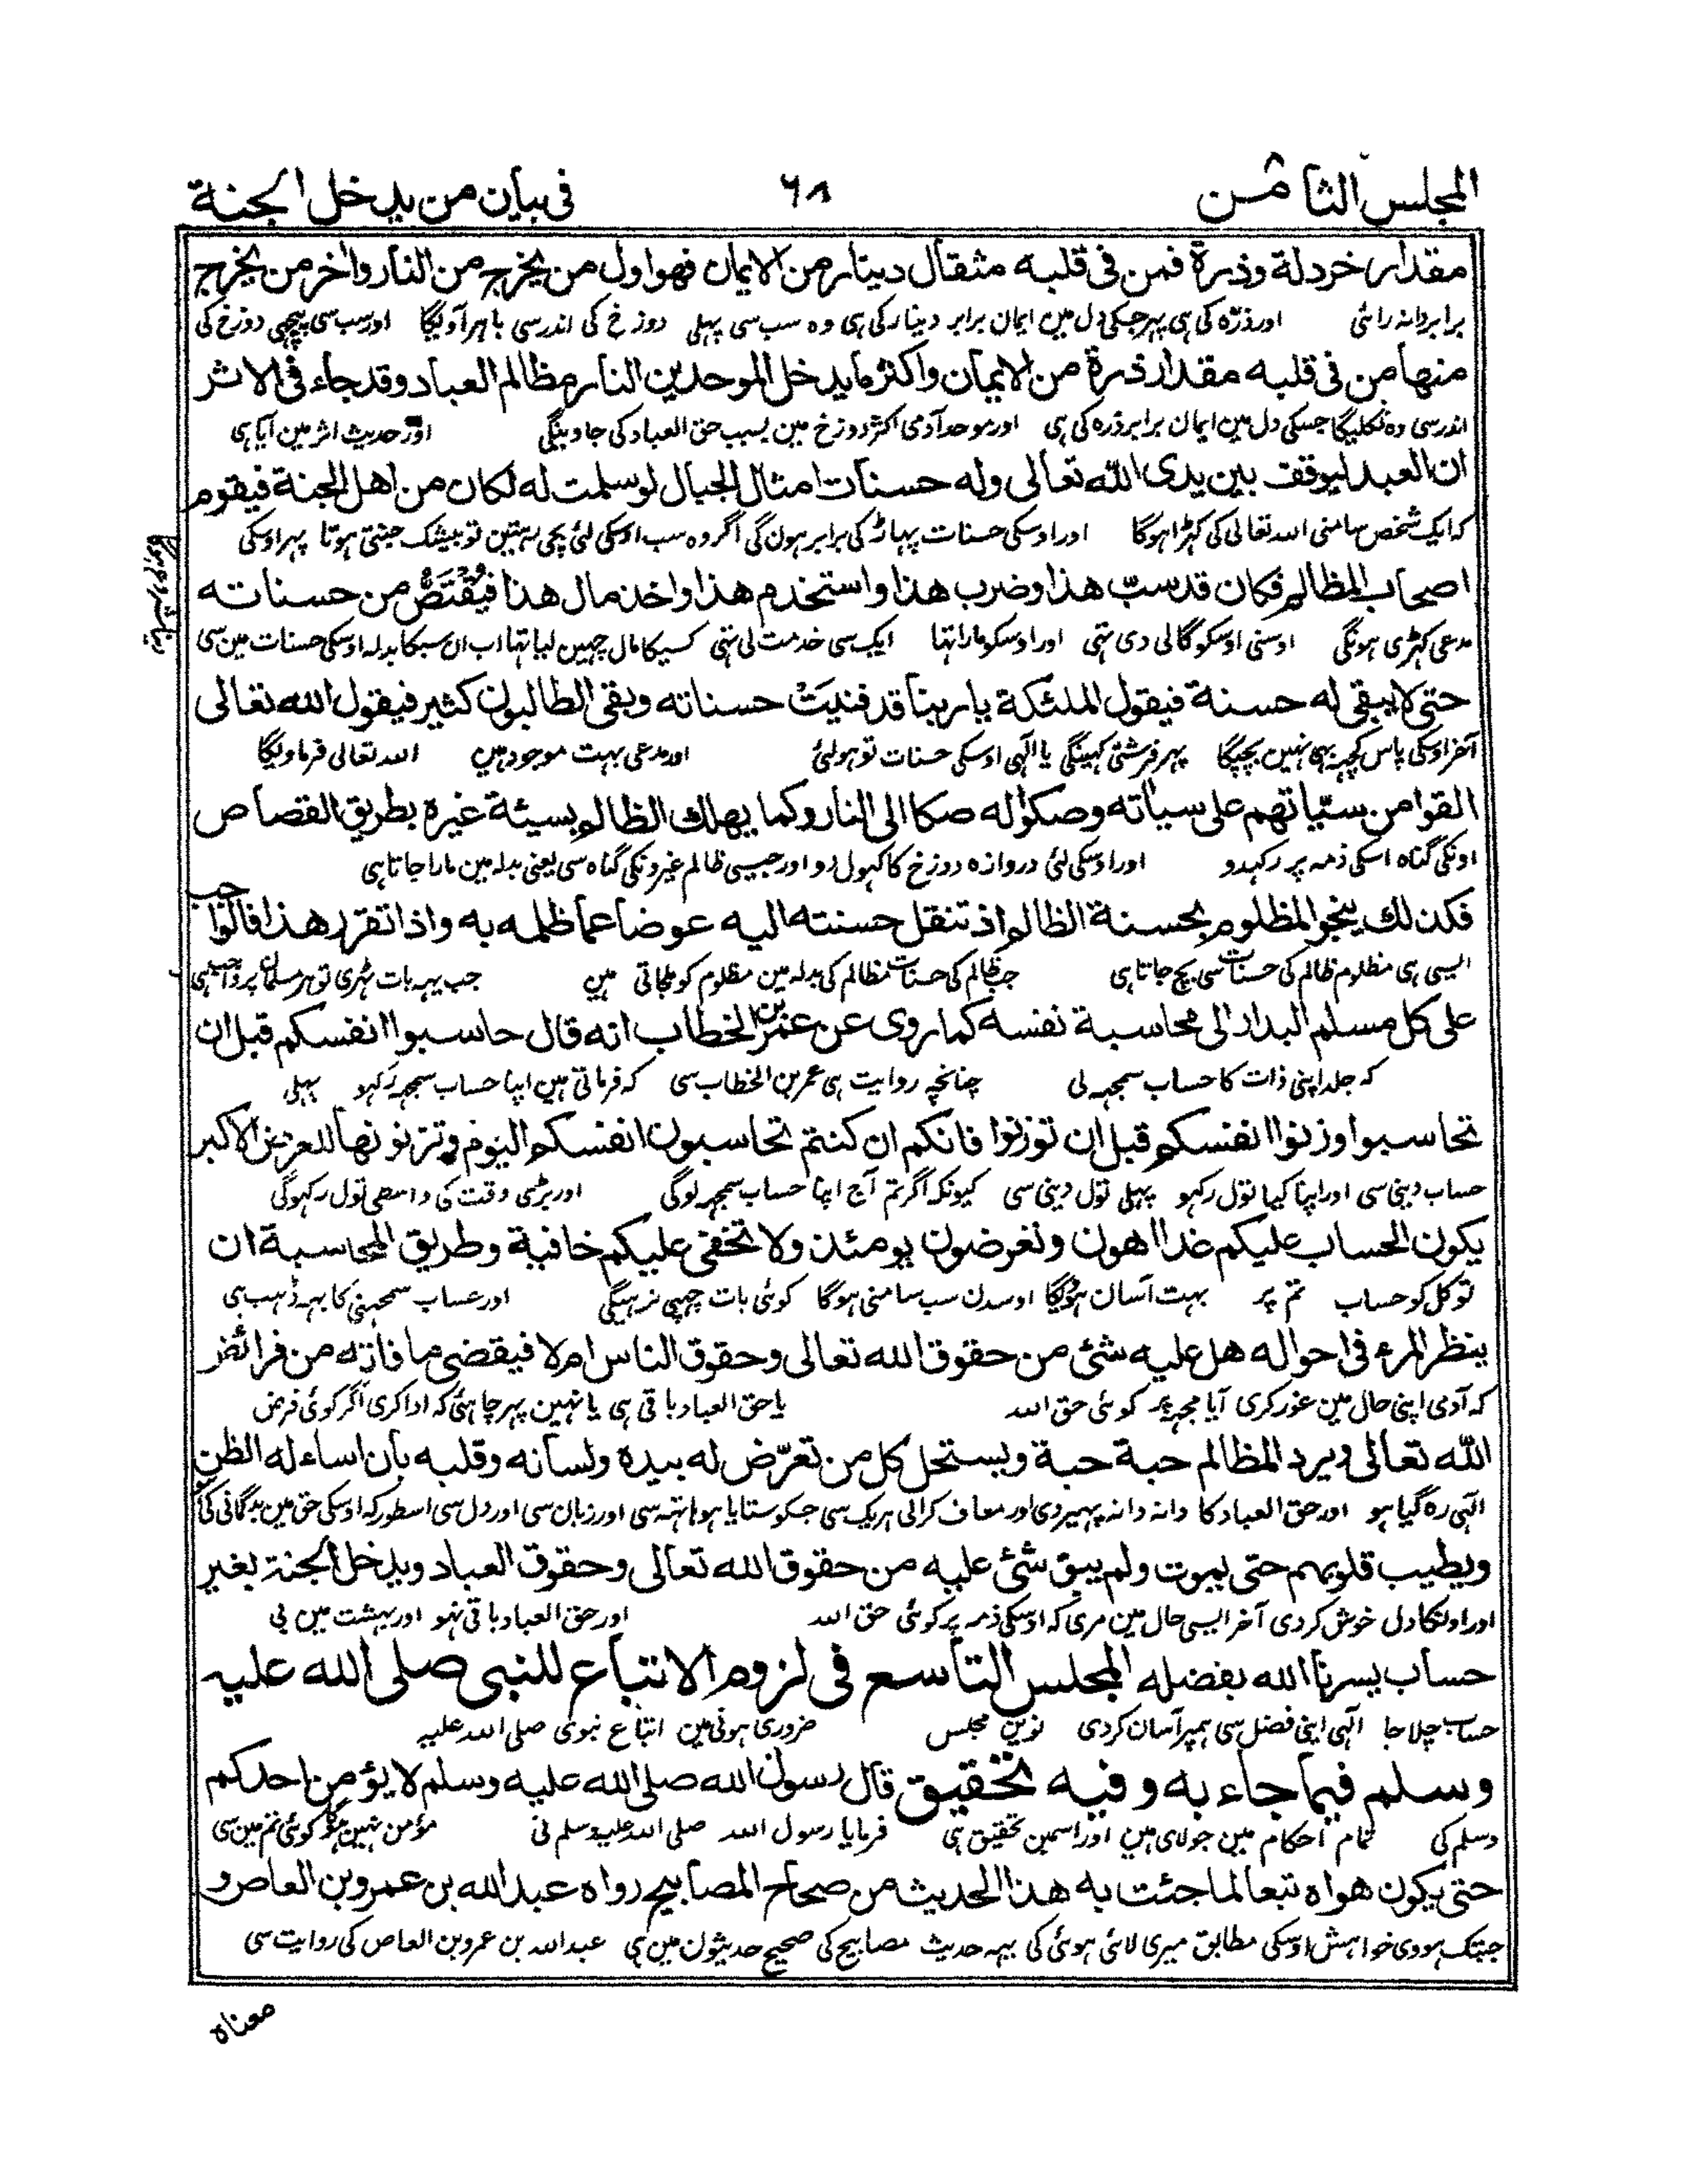 المجلس الثامن ٦٨ فی بیان من یدخل الجنة
مقدار خردلة وذرة فمن فی قلبه مثقال دینار من الایمان فهو اول من یخرج من النار واخر من یخرج
برابر دانہ رائی اور ذرّہ کی ہی پہر جسکی دل مین ایمان برابر دینار کی ہی وہ سب سی پہلی دوزخ کی اندر سی باہر آویگا اور سب سی پیچہی دوزخ کی
منها من فی قلبه مقدار ذرة من الایمان واکثر ما یدخل الموحدین النار مظالم العباد وقد جاء فی الاثر
اندر سی وہ نکلیگا جسکی دل مین ایمان برابر ذرہ کی ہی اور موحد آدمی اکثر دوزخ مین بسبب حق العباد کی جاوینگی اور حدیث اثر مین آیا ہی
ان العبد لیوقف بین یدی الله تعالی وله حسنات امثال الجبال لو سلمت له لکان من اهل الجنة فیقوم
کہ ایک شخص سامنی اللہ تعالی کی کہڑا ہوگا اور اوسکی حسنات پہاڑ کی برابر ہون گی اگر وہ سب اوسکی لئی بچی رہتین تو بیشک جنتی ہوتا پہر اوسکی
اصحاب المظالم فکان قد سبّ هذا وضرب هذا واستخدم هذا واخذ مال هذا فیُقْتَصُّ من حسناته
مدعی کہڑی ہونگی اوسنی اوسکو گالی دی تہی اور اوسکو مارا تہا ایک سی خدمت لی تہی کسیکا مال چہین لیا تہا اب ان سبکا بدلہ اوسکی حسنات مین سی
حتی لا یبقی له حسنة فیقول الملئکة یا ربنا قد فنیَتْ حسناته وبقی الطالبون کثیر فیقول الله تعالی
آخر اوسکی پاس کچہ بہی نہین بچیگا پہر فرشتی کہینگی یا الٓہی اوسکی حسنات تو ہولئی اور مدعی بہت موجود ہین اللہ تعالی فرماویگا
القوا من سیّاتهم علی سیاته وصکوا له صکا الی النار وکما یهلك الظالم بسیئة غیره بطریق القصاص
اونکی گناہ اسکی ذمہ پر رکہدو اور اوسکی لئی دروازہ دوزخ کا کہول دو اور جیسی ظالم غیرونکی گناہ سی یعنی بدلہ مین مارا جاتا ہی
فکذلك ینجو المظلوم بحسنة الظالم اذ تنقل حسنته الیه عوضا عما ظلمه به واذا تقرر هذا فالواجب
ایسی ہی مظلوم ظالم کی حسنات سی بچ جاتا ہی جب ظالم کی حسنات مظالم کی بدلہ مین مظلوم کو ملجاتی ہین جب یہہ بات ٹہری تو ہر مسلمان پر واجب ہی
علی کل مسلم البدار الی محاسبة نفسه کما روی عن عمر بن الخطاب انه قال حاسبوا انفسکم قبل ان
کہ جلد اپنی ذات کا حساب سمجہہ لی چنانچہ روایت ہی عمر بن الخطاب سی کہ فرماتی ہین اپنا حساب سمجہہ رکہو پہلی
تحاسبوا وزنوا انفسکم قبل ان توزنوا فانکم ان کنتم تحاسبون انفسکم الیوم وتزنونها للعرض الاکبر
حساب دینی سی اور اپنا کیا تول رکہو پہلی تول دینی سی کیونکہ اگر تم آج اپنا حساب سمجہہ لوگی اور بڑی وقت کی واسطی تول رکہوگی
یکون الحساب علیکم غدا اهون وتعرضون یومئذ ولا تخفی علیکم خافیة وطریق المحاسبة ان
تو کل کو حساب تم پر بہت آسان ہوگا اوسدن سب سامنی ہوگا کوئی بات چہپی نرہیگی اور حساب سمجہنی کا یہہ ڈہب ہی
ینظر المرء فی احواله هل علیه شئ من حقوق الله تعالی وحقوق الناس ام لا فیقضی ما فاته من فرائض
کہ آدمی اپنی حال مین غور کری آیا مجہہ پر کوئی حق اللہ یا حق العباد باقی ہی یا نہین پہر چاہئی کہ ادا کری اگر کوئی فرض
الله تعالی ویرد المظالم حبة حبة ویستحل کل من تعرّض له بیده ولسانه وقلبه بان اساء له الظن
الٓہی رہ گیا ہو اور حق العباد کا دانہ دانہ پہیر دی اور معاف کرالی ہر یک سی جسکو ستایا ہو ہاتہہ سی اور زبان سی اور دل سی اسطور کہ اوسکی حق مین بدگمانی کی
ویطیب قلوبهم حتی یموت ولم یبق شئ علیه من حقوق الله تعالی وحقوق العباد ویدخل الجنة بغیر
اور اونکا دل خوش کردی آخر ایسی حال مین مری کہ اوسکی ذمہ پر کوئی حق اللہ اور حق العباد باقی نہو اور بہشت مین بی
حساب یسرنا الله بفضله المجلس التاسع فی لزوم الاتباع للنبی صلی الله علیه
حساب چلا جا الٓہی اپنی فضل سی ہمپر آسان کردی نوین مجلس ضروری ہونی مین اتباع نبوی صلی اللہ علیہ
وسلم فیما جاء به وفیه تحقیق قال رسول الله صلی الله علیه وسلم لا یؤمن احدکم
وسلم کی تمام احکام مین جو لای ہین اور اسمین تحقیق ہی فرمایا رسول اللہ صلی اللہ علیہ وسلم نی مؤمن نہین ہوگا کوئی تم مین سی
حتی یکون هواه تبعا لما جئت به هذا الحدیث من صحاح المصابیح رواه عبد الله بن عمرو بن العاص و
جبتک ہووی خواہش اوسکی مطابق میری لائی ہوئی کی یہہ حدیث مصابیح کی صحیح حدیثون مین ہی عبد اللہ بن عمرو بن العاص کی روایت سی
معناه